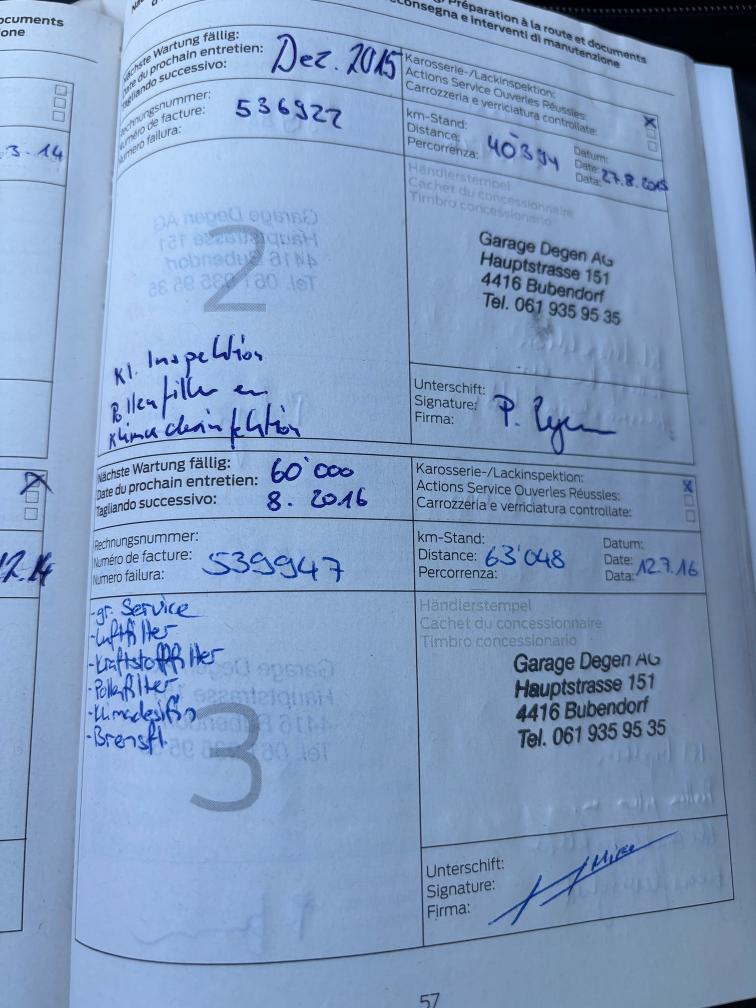 ocuments
one
3.14
12.14
Préparation à la route et documents
consegna e interventi di manutenzione
Nächste Wartung fällig:
Date du prochain entretien:
Tagliando successivo:
Dez. 2015
Karosserie-/Lackinspektion:
Actions Service Ouverles Réussles:
Carrozzeria e verriciatura controllate:
chnungsnummer:
uméro de facture:
Numero failura:
536922
km-Stand:
Distance:
Percorrenza:
40394
Datum:
Date:
Data:
27.8.2015
Händlerstempel
Cachet du concessionnaire
Timbro concessionario
2
Garage Degen AG
Hauptstrasse 151
4416 Bubendorf
Tel. 061 935 95 35
Kl. Inspektion
Pollenfilter
Klimadesinfektion
Unterschift:
Signature:
Firma:
Nächste Wartung fällig:
Date du prochain entretien:
Tagliando successivo:
60'000
8. 2016
Karosserie-/Lackinspektion:
Actions Service Ouverles Réussles:
Carrozzeria e verriciatura controllate:
Rechnungsnummer:
Numéro de facture:
Numero failura:
539947
km-Stand:
Distance:
Percorrenza:
63'048
Datum:
Date:
Data:
12.7.16
-gr. Service
-Luftfilter
-Kraftstofffilter
-Pollenfilter
-Klimadesifin
-Bremsfl.
Händlerstempel
Cachet du concessionnaire
Timbro concessionario
3
Garage Degen AG
Hauptstrasse 151
4416 Bubendorf
Tel. 061 935 95 35
Unterschift:
Signature:
Firma:
57